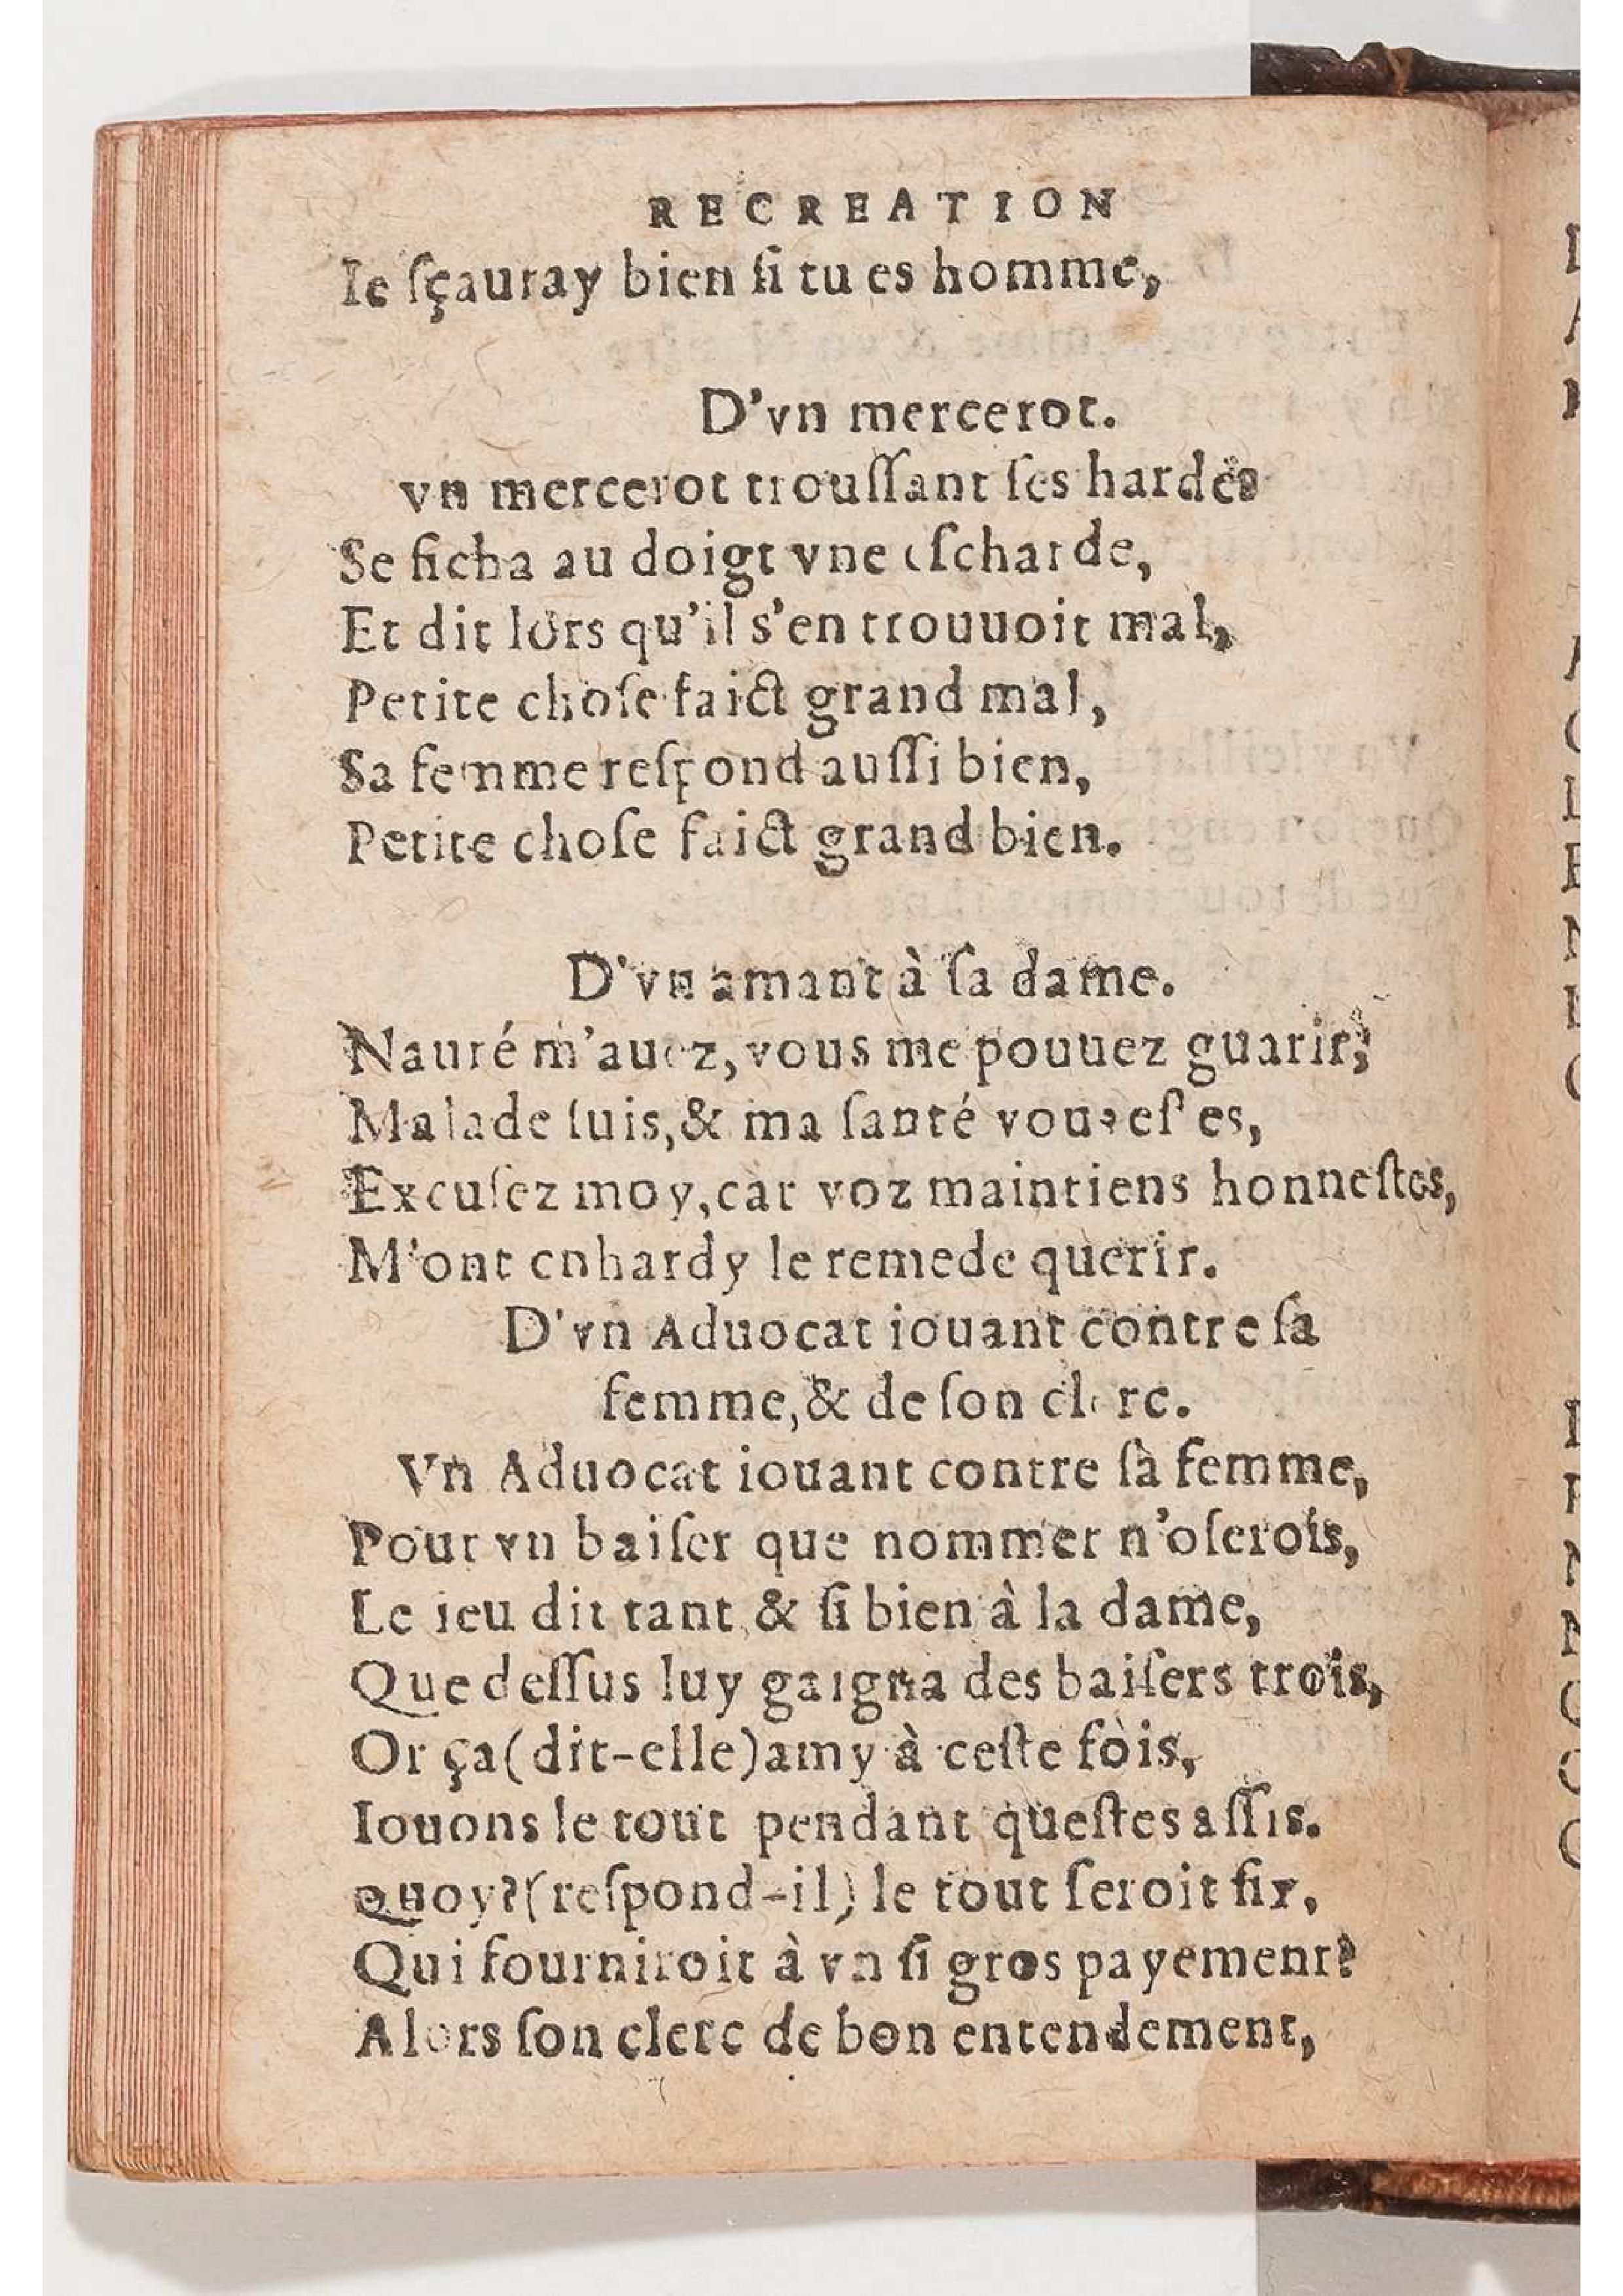 RECREATION
Ie ſçauray bien ſi tu es homme,
D'vn mercerot.
vn mercerot trouſſant ſes hardes
Se ficha au doigt vne eſcharde,
Et dit lors qu'il s'en trouuoit mal,
Petite choſe faict grand mal,
Sa femme reſpond auſſi bien,
Petite choſe faict grand bien.
D'vn amant à ſa dame.
Nauré m'auez, vous me pouuez guarir,
Malade ſuis, & ma ſanté vous eſ es,
Excuſez moy, car voz maintiens honneſtes,
M'ont enhardy le remede querir.
D'vn Aduocat iouant contre ſa
femme, & de ſon clerc.
Vn Aduocat iouant contre ſa femme,
Pour vn baiſer que nommer n'oſerois,
Le ieu dit tant & ſi bien à la dame,
Que deſſus luy gaigna des baiſers trois,
Or ça (dit-elle) amy à ceſte fois,
Iouons le tout pendant queſtes aſſis.
quoy? (reſpond-il) le tout ſeroit ſix,
Qui fourniroit à vn ſi gros payement?
Alors ſon clerc de bon entendement,